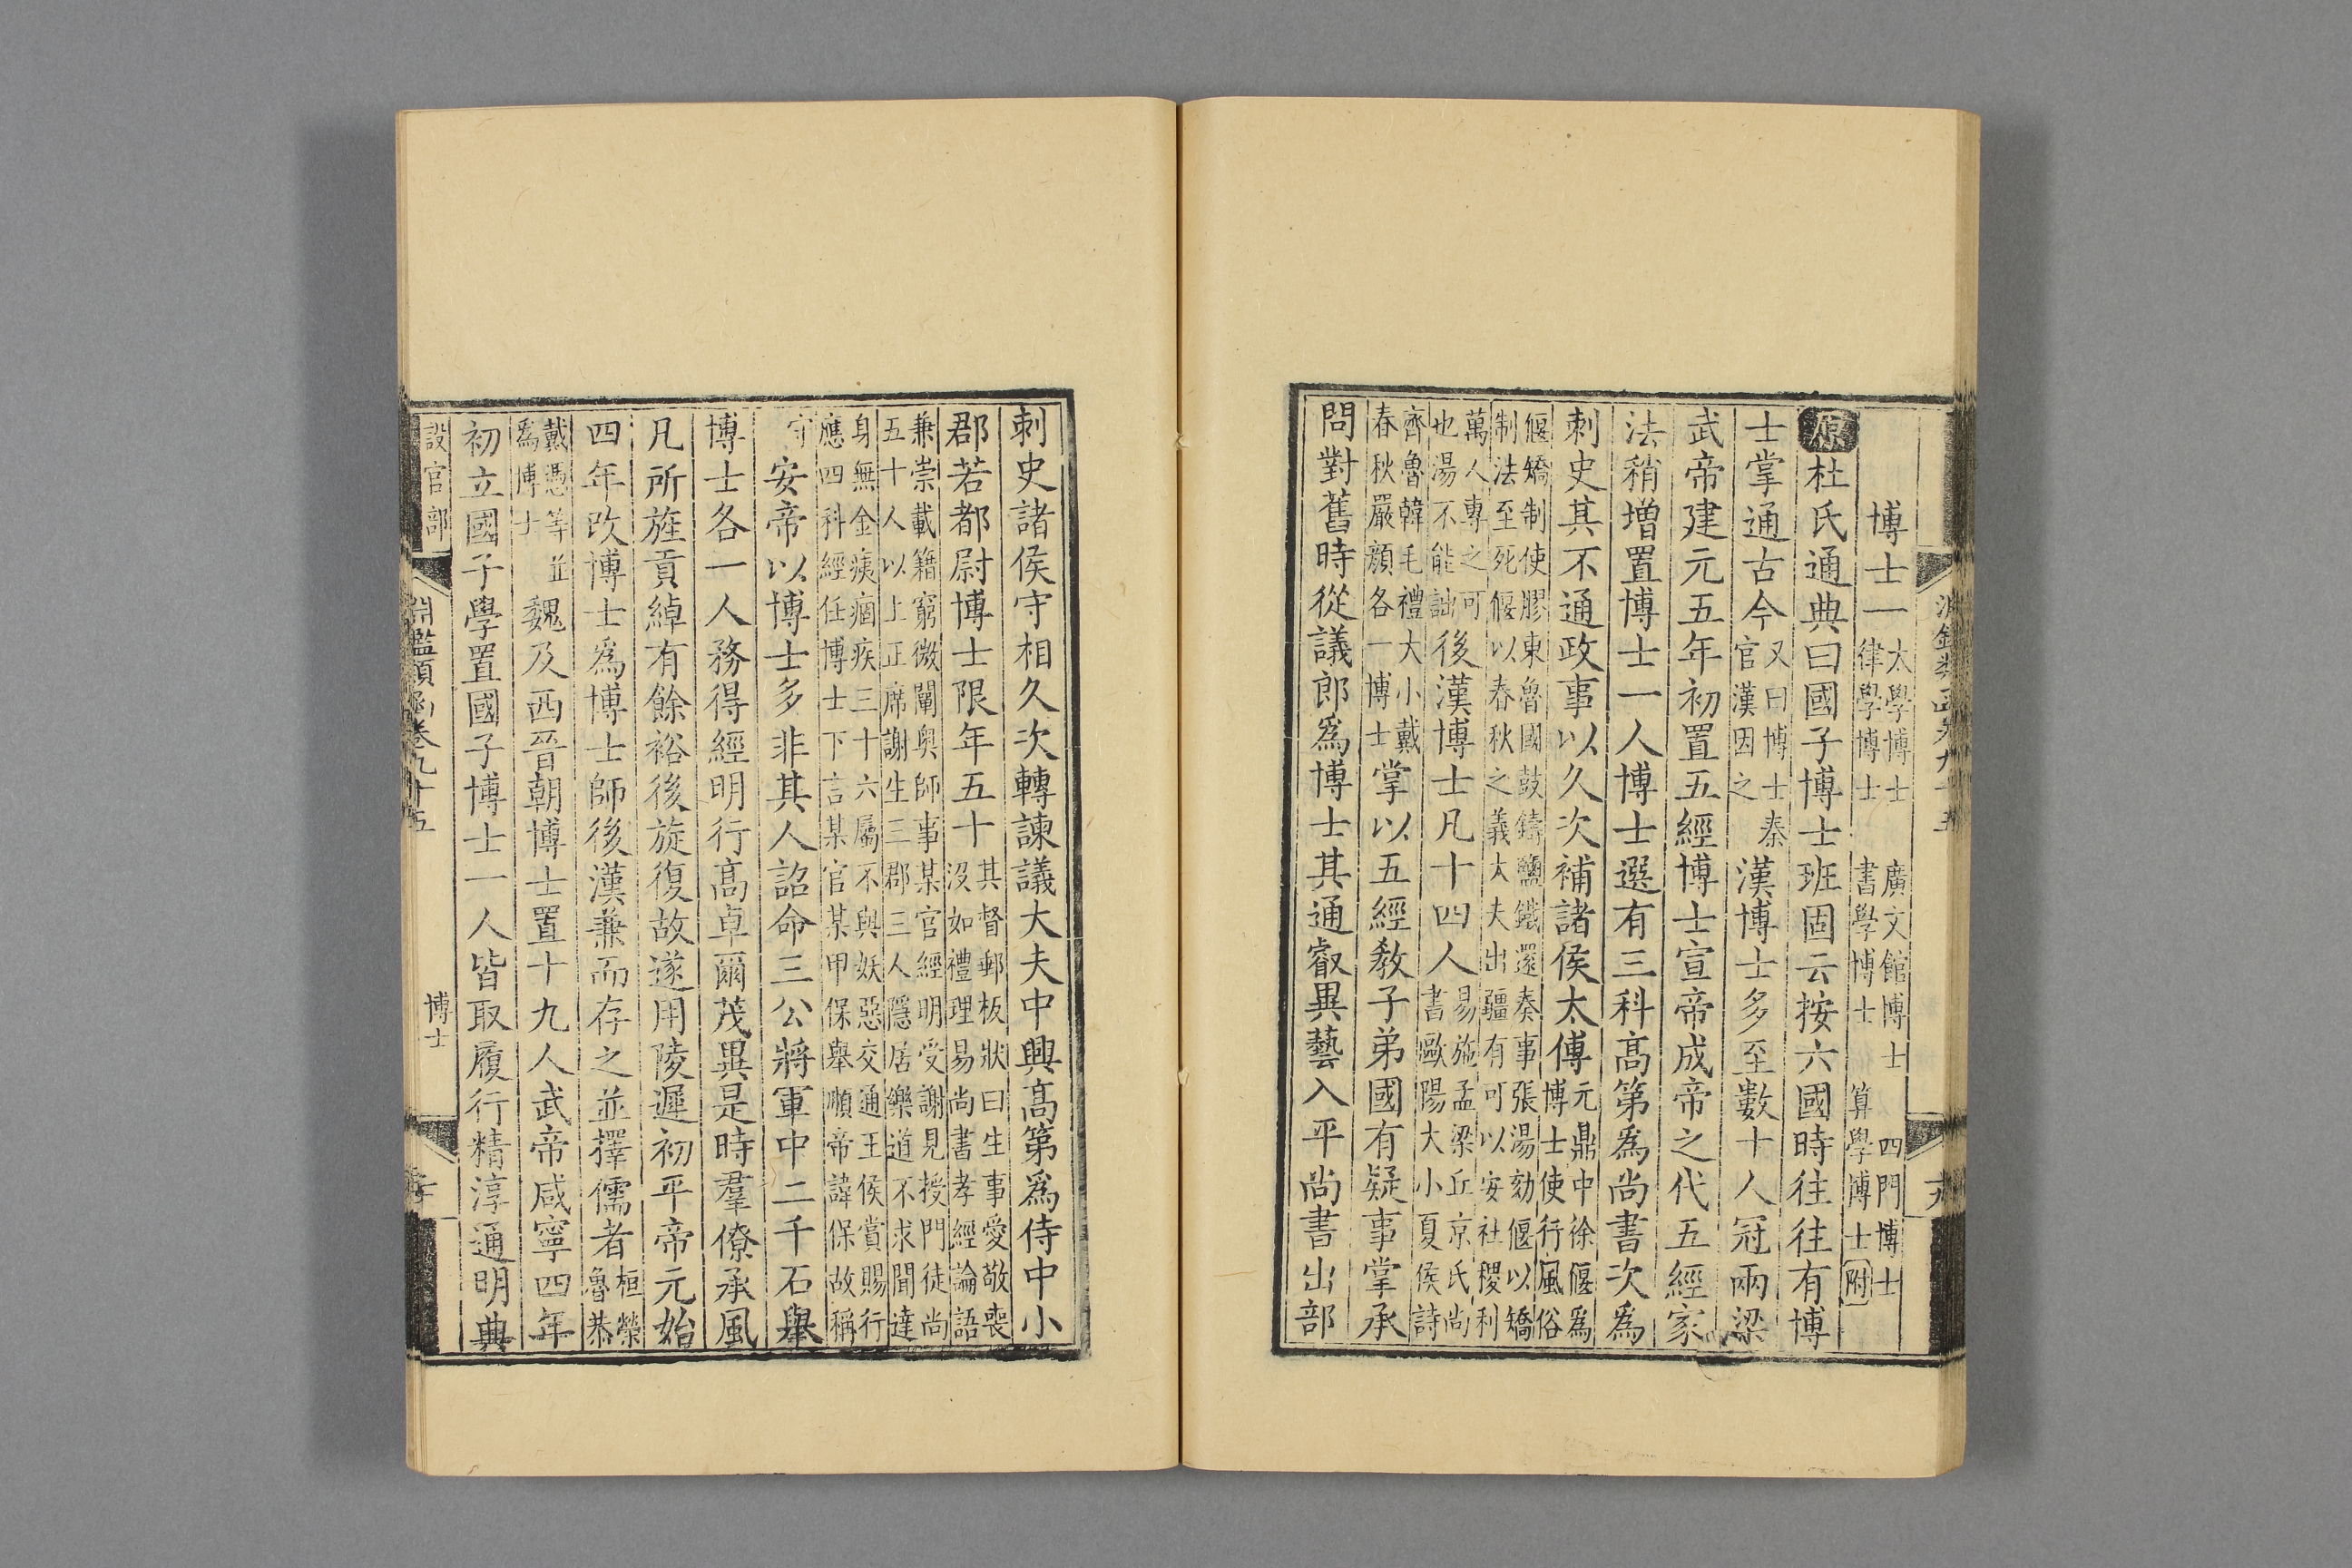 博士一 太學博士 律學博士 廣文館博士 書學博士 四門博士 算學博士 附
原 杜氏通典曰國子博士班固云按六國時往往有博
士掌通古今 又曰博士秦官漢因之 漢博士多至數十人冠兩梁
武帝建元五年初置五經博士宣帝成帝之代五經家
法稍增置博士一人博士選有三科高第爲尚書次爲
刺史其不通政事以久次補諸侯太傅 元鼎中徐偃爲博士使行風俗
偃矯制使膠東魯國鼓鑄鹽鐵還奏事張湯劾偃以矯
制法至死偃以春秋之義大夫出疆有可以安社稷利
萬人專之可也湯不能詘 後漢博士凡十四人 易施孟梁丘京氏尚書歐陽大小夏侯詩
齊魯韓毛禮大小戴春秋嚴顏各一博士 掌以五經教子弟國有疑事掌承
問對舊時從議郎爲博士其通叡異藝入平尚書出部
刺史諸侯守相久次轉諫議大夫中興高第爲侍中小
郡若都尉博士限年五十 其督郵板狀曰生事愛敬喪没如禮理易尚書孝經論語
兼崇載籍窮微闡奧師事某官經明受謝見授門徒尚
五十人以上正席謝生三郡三人隱居樂道不求聞達
身無金痍痼疾三十六屬不與妖惡交通王侯賞賜行
應四科經任博士下言某官某甲保舉順帝諱保故稱
守 安帝以博士多非其人詔命三公將軍中二千石舉
博士各一人務得經明行高卓爾茂異是時羣僚承風
凡所旌貢綽有餘裕後旋復故遂用陵遲初平帝元始
四年改博士爲博士師後漢兼而存之並擇儒者 桓榮魯恭
戴憑等並爲博士 魏及西晉朝博士置十九人武帝咸寧四年
初立國子學置國子博士一人皆取履行精淳通明典
設官部 淵鑑類函卷九十五 博士